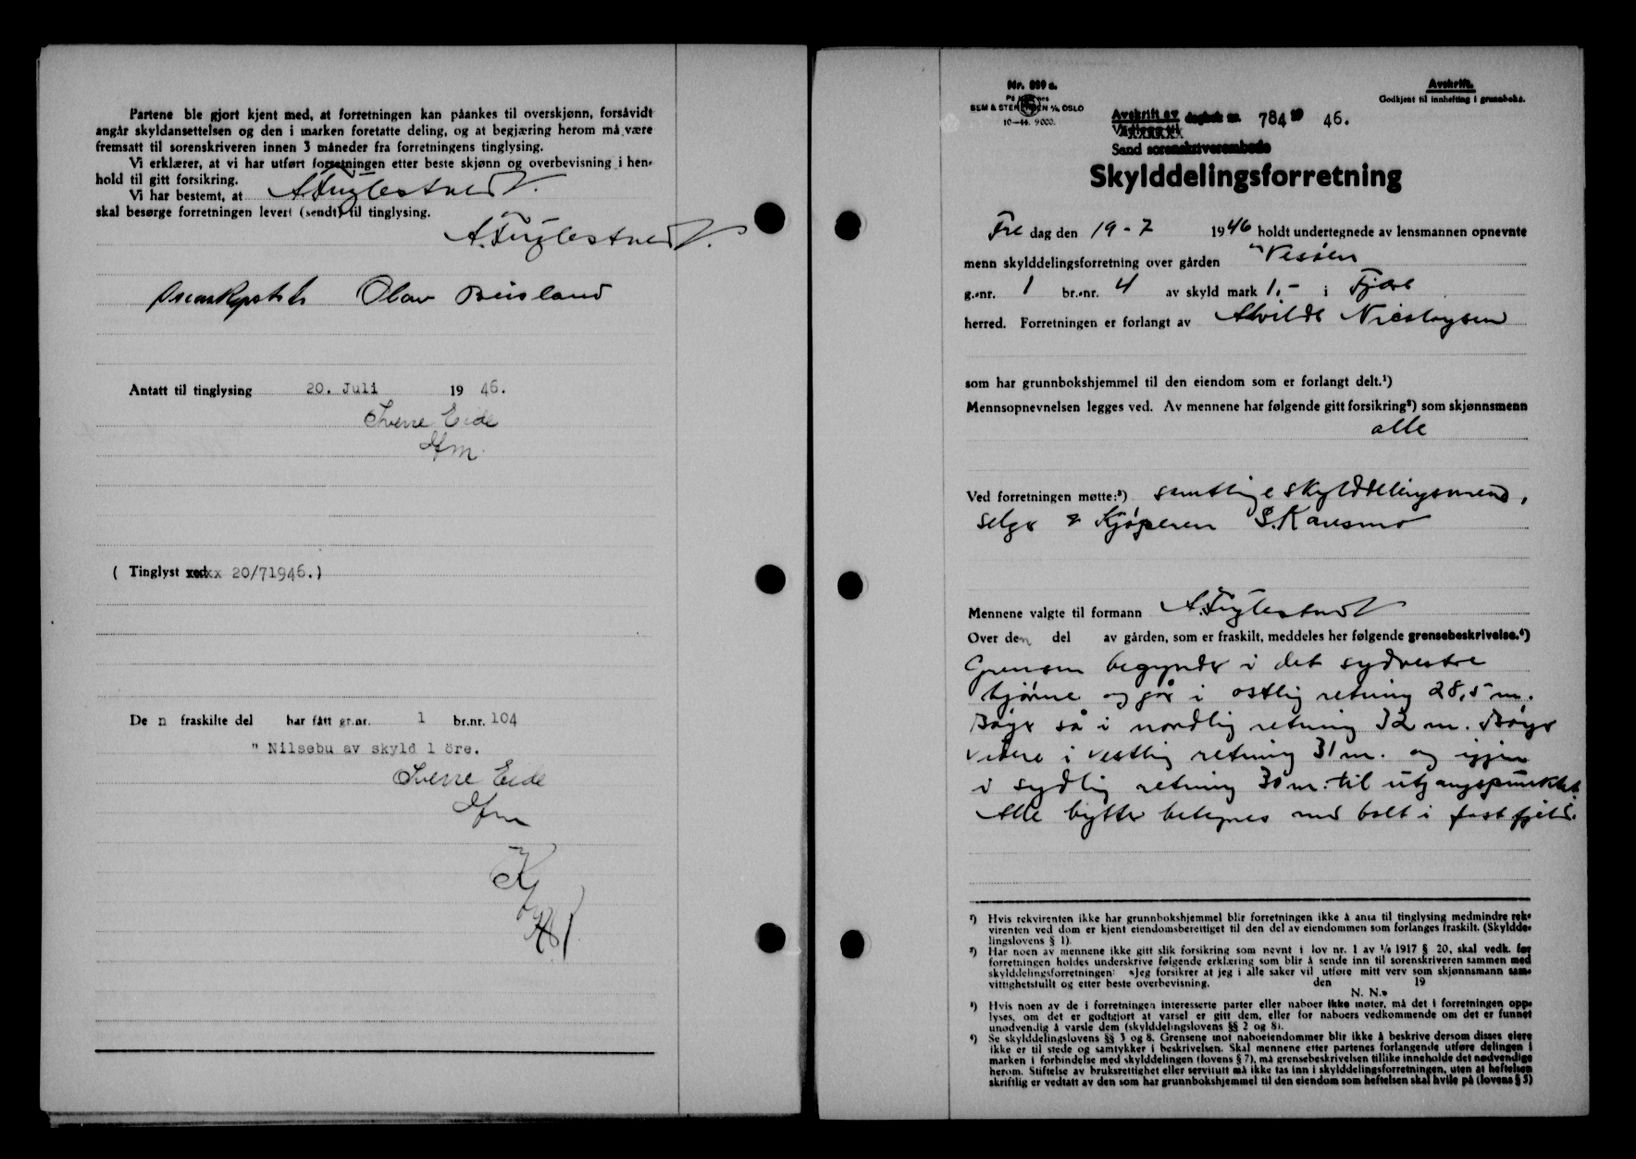 Partene ble gjort kjent med, at forretningen kan påankes til overskjønn, forsåvidt
angår skyldansettelsen og den i marken foretatte deling, og at begjæring herom må være
fremsatt til sorenskriveren innen 3 måneder fra forretningens tinglysing.
Vi erklærer, at vi har utført forretningen etter beste skjønn og overbevisning i hen-
hold til gitt forsikring.
Vi har bestemt, at A. Fuglestvedt
skal besørge forretningen levert (sendt) til tinglysing.
A. Fuglestvedt.
Olav Beisland
Antatt til tinglysing 20. Juli 19 46.
Sverre Eide
( Tinglyst xxx 20/71946.)
De n fraskilte del har fått gr.nr. 1 br.nr. 104
" Nilsebu av skyld 1 öre.
Sverre Eide
Nr. 889 a.
SEM & STENERSEN A/S OSLO
10-44. 9000.
Avskrift.
Godkjent til innhefting i grunnboka.
Avskrift av dagbok nr. 784 19 46.
Vedlegg til
Sand sorenskriverembede
Skylddelingsforretning
Fre dag den 19-7 1946 holdt undertegnede av lensmannen opnevnte
menn skylddelingsforretning over gården "Vesøen
g.-nr. 1 br.-nr. 4 av skyld mark 1,- i Fjære
herred. Forretningen er forlangt av Alvilde Nicolaysen
som har grunnbokshjemmel til den eiendom som er forlangt delt.¹)
Mennsopnevnelsen legges ved. Av mennene har følgende gitt forsikring²) som skjønnsmenn
alle
Ved forretningen møtte:³) samtlige skylddelingsmend,
selger & Kjøperen S. Karesmo
Mennene valgte til formann A. Fuglestvedt
Over den del av gården, som er fraskilt, meddeles her følgende grensebeskrivelse.⁴)
Grensen begynder i det sydvestre
hjörne og går i østlig retning 28,5 m.
Böyer så i nordlig retning 32 m. Böyer
videre i vestlig retning 31 m. og igjen
i sydlig retning 30 m. til utgangspunktet.
Alle bytter betegnes med bolt i fast fjeld.
¹) Hvis rekvirenten ikke har grunnbokshjemmel blir forretningen ikke å anta til tinglysing medmindre rek-
virenten ved dom er kjent eiendomsberettiget til den del av eiendommen som forlanges fraskilt. (Skyldde-
lingslovens § 1).
²) Har noen av mennene ikke gitt slik forsikring som nevnt i lov nr. 1 av 1/6 1917 § 20, skal vedk. før
forretningen holdes underskrive følgende erklæring som blir å sende inn til sorenskriveren sammen med
skylddelingsforretningen: »Jeg forsikrer at jeg i alle saker vil utføre mitt verv som skjønnsmann sam-
vittighetsfullt og etter beste overbevisning. den 19
N. N.»
³) Hvis noen av de i forretningen interesserte parter eller naboer ikke møter, må det i forretningen opp-
lyses, om det er godtgjort at varsel er gitt dem, eller for naboers vedkommende om det er funnet
unødvendig å varsle dem (skylddelingslovens §§ 2 og 8).
⁴) Se skylddelingslovens §§ 3 og 8. Grensene mot naboeiendommer blir ikke å beskrive dersom disses eiere
ikke er til stede og samtykker i beskrivelsen. Skal mennene etter partenes forlangende utføre delingen i
marken i forbindelse med skylddelingen (lovens § 7), må grensebeskrivelsen tillike inneholde det nødvendige
herom. Stiftelse av bruksrettighet eller servitutt må ikke tas inn i skylddelingsforretningen, uten at heftelsen
skriftlig er vedtatt av den som har grunnbokshjemmel til den eiendom som heftelsen skal hvile på (lovens § 5)